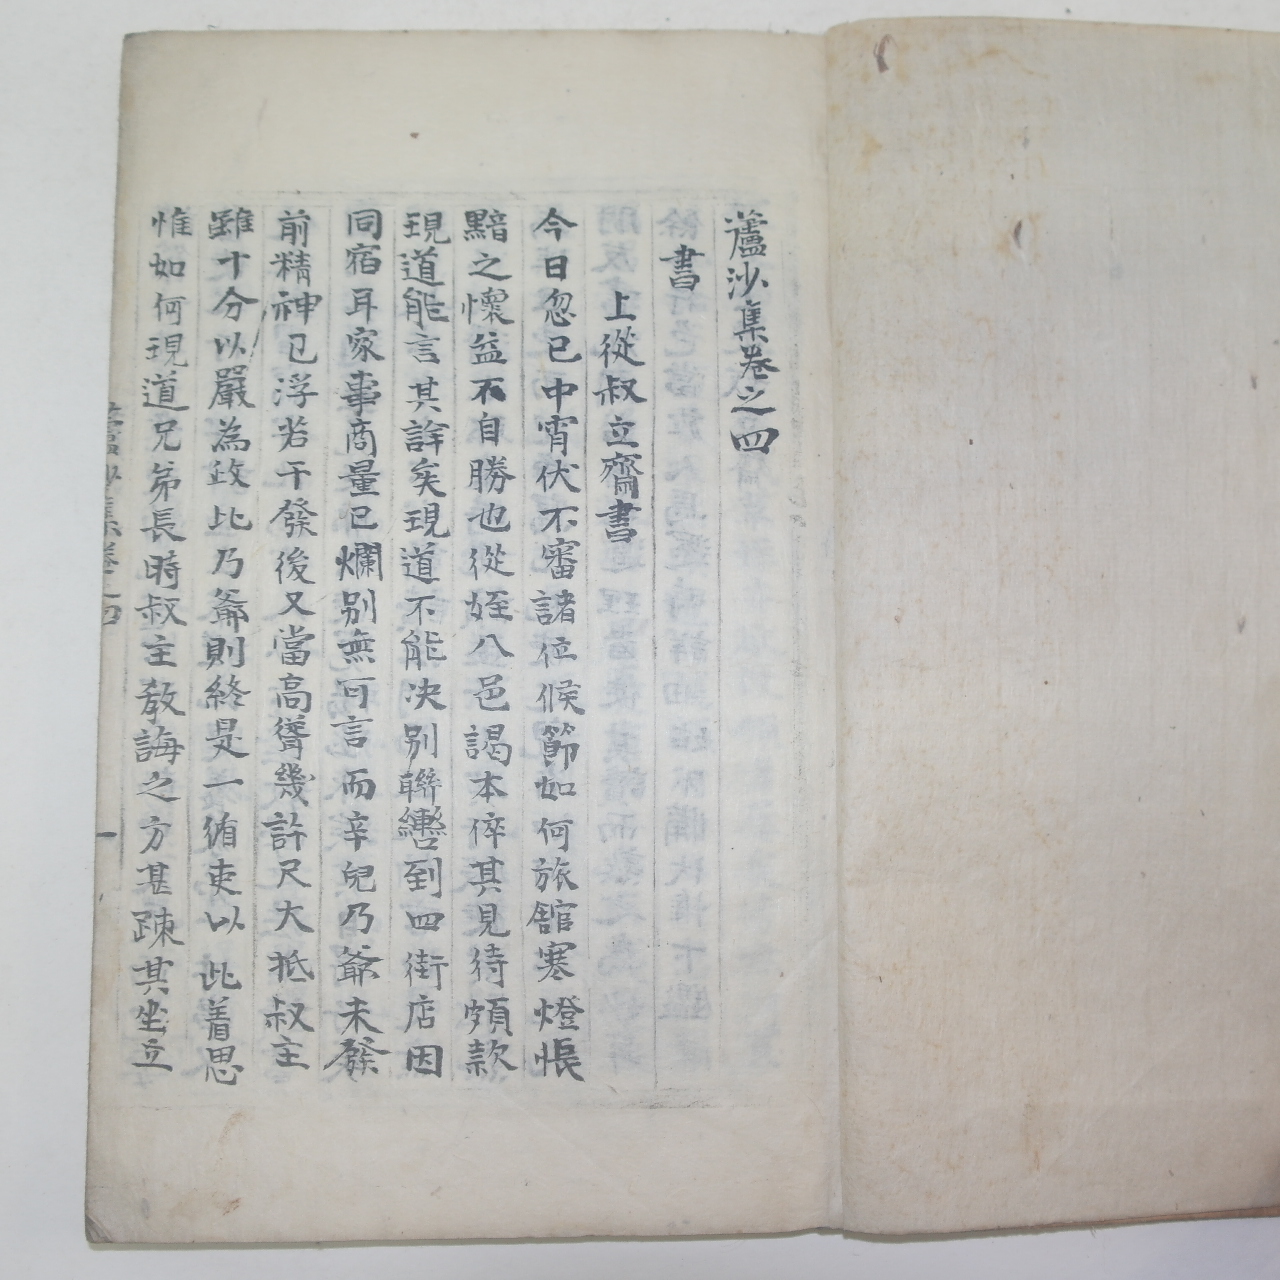 蘆沙集卷之四
書
上從叔立齋書
今日忽已中宵伏不審諸位候節如何旅舘寒燈悵
黯之懷益不自勝也從姪八邑謁本倅其見待頗款
現道能言其詳矣現道不能决別聯轡到四街店因
同宿耳家事商量已爛別無可言而辛兒乃爺未發
前精神已浮若干發後又當高聳幾許尺大抵叔主
雖十分以嚴為政此乃爺則終是一循吏以此着思
惟如何現道兄弟長時叔主教誨之方甚踈其坐立
蘆沙集卷之四
一